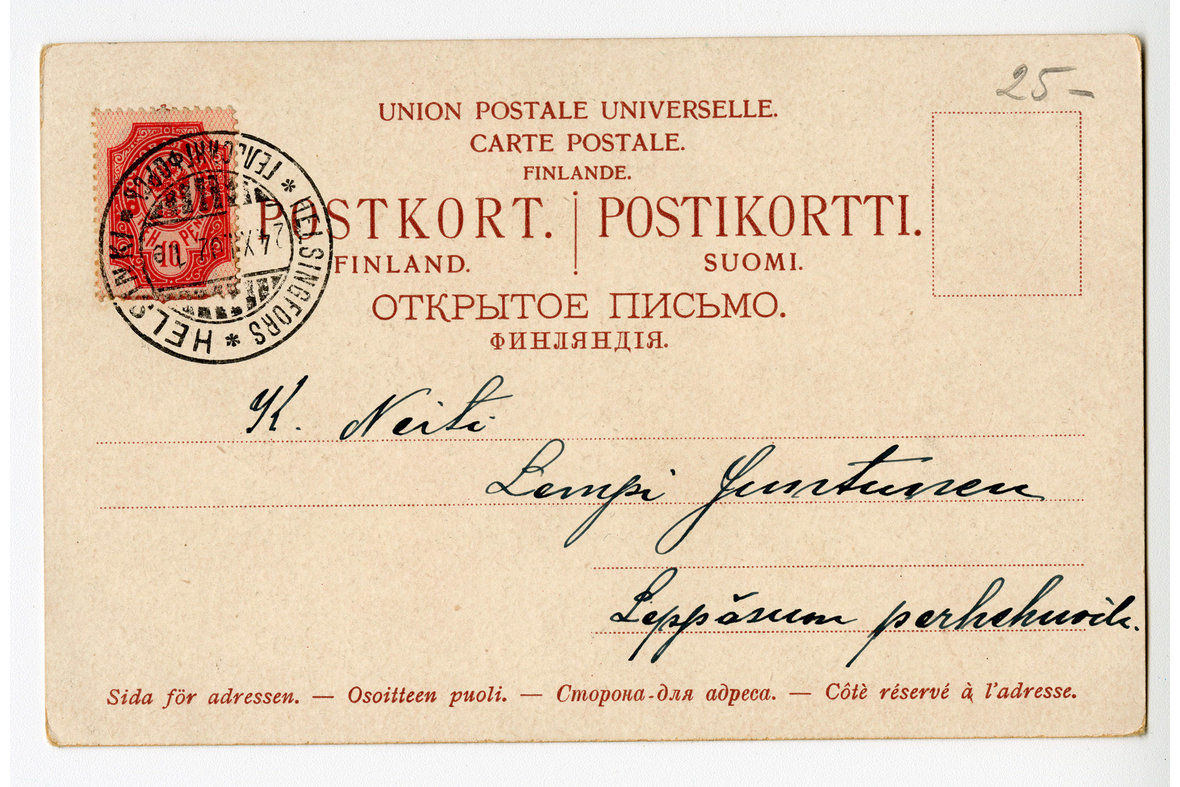 25-
UNION POSTALE UNIVERSELLE.
CARTE POSTALE.
FINLANDE.
POSTKORT. POSTIKORTTI.
FINLAND. SUOMI.
ОТКРЫТОЕ ПИСЬМО.
ФИНЛЯНДІЯ.
HELSINKI * HELSINGFORS * ГЕЛЬСИНГФОРСЪ *
10 PEN
K. Neiti
Lempi Juntunen
Leppäsuon perhehuvik.
Sida för adressen. — Osoitteen puoli. — Сторона-для адреса. — Côtè réservé à l'adresse.